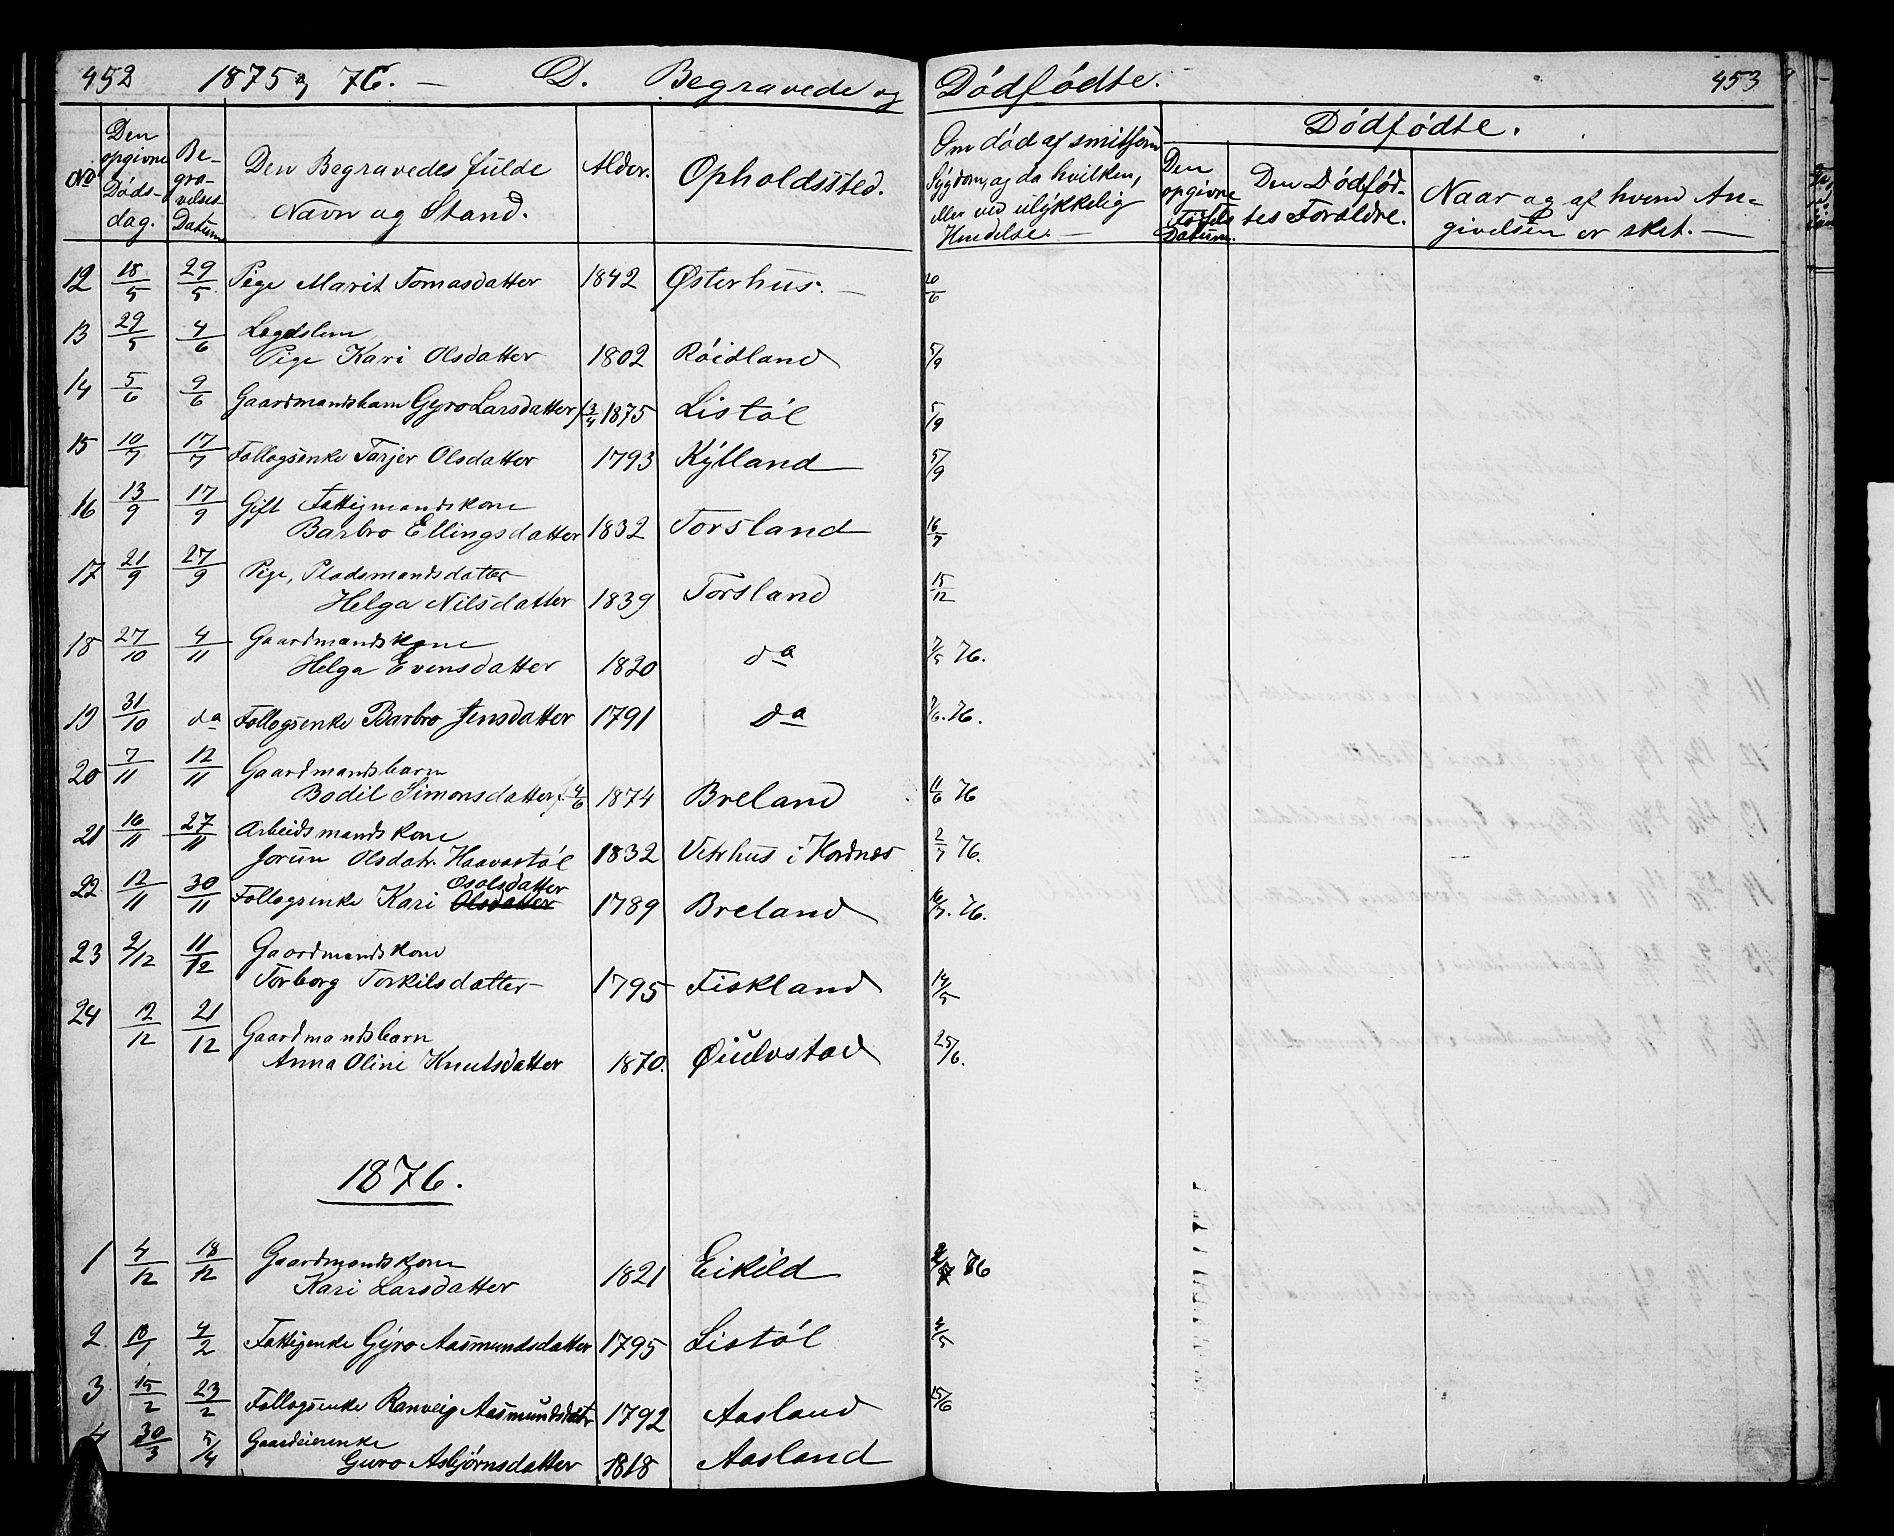 452 1875 og 76. — D. Begravede og Dödfödte. 453
No Den opgivne Döds-dag. Be-gra-velses Datum Den Begravedes fulde Navn og Stand. Alder. Opholdssted. Om död af smitsom Sygdom, og da hvilken, eller ved ulykkelig Hendelse. — Dödfödte.
Den opgivne Födsels Datum. Den Dödföd-tes Foreldre. Naar og af hvem An-givelsen er sket. —
12 18/5 29/5 Pige Marit Tomasdatter 1842 Østerhus. — 20/6
13 29/5 4/6 Lægdslem
Pige Kari Olsdatter 1802 Röidland 5/9
14 5/6 9/6 Gaardmandsbarn Gyro Larsdatter f 3/4 1875 Listöl 5/9
15 10/7 17/7 Follogsenke Tarjer Olsdatter 1793 Kÿlland 5/9
16 13/9 17/9 Gift Fattigmandskone
Barbro Ellingsdatter 1832 Torsland 16/7
17 21/9 27/9 Pige, Pladsmandsdatter
Helga Nilsdatter 1839 Torsland 15/12
18 27/10 4/11 Gaardmandskone
Helga Evensdatter 1820 da 7/5 76.
19 31/10 da Follogsenke Barbro Jensdatter 1791 da 7/6. 76.
20 7/11 12/11 Gaardmandsbarn
Bodil Simonsdatter f. 4/6 1874 Breland 11/6 76
21 16/11 27/11 Arbeidsmandskone
Jorun Olsdatr. Haavastöl 1832 Vetrhus i Hordnes 2/7 76.
Osolsdatter
22 12/11 30/11 Follogsenke Kari Olsdatter 1789 Breland 16/7. 76.
23 2/12 11/12 Gaardmandskone
Torborg Torkilsdatter 1795 Fiskland 14/5
24 12/12 21/12 Gaardmandsbarn
Anna Oline Knutsdatter 1870. Øiulvstad 25/6.
1876.
1 4/12 18/12 Gaardmandskone
Kari Larsdatter 1821 Eikild 76
2 10/1 4/2 Fattigenke Gÿro Aasmundsdatter 1795 Listöl 4/5
3 15/2 23/2 Follogsenke Ranveig Aasmundsdatr 1792 Aasland 15/6
4 30/3 5/4 Gaardeierenke
Guro Asbjørnsdatter 1818 Aasland